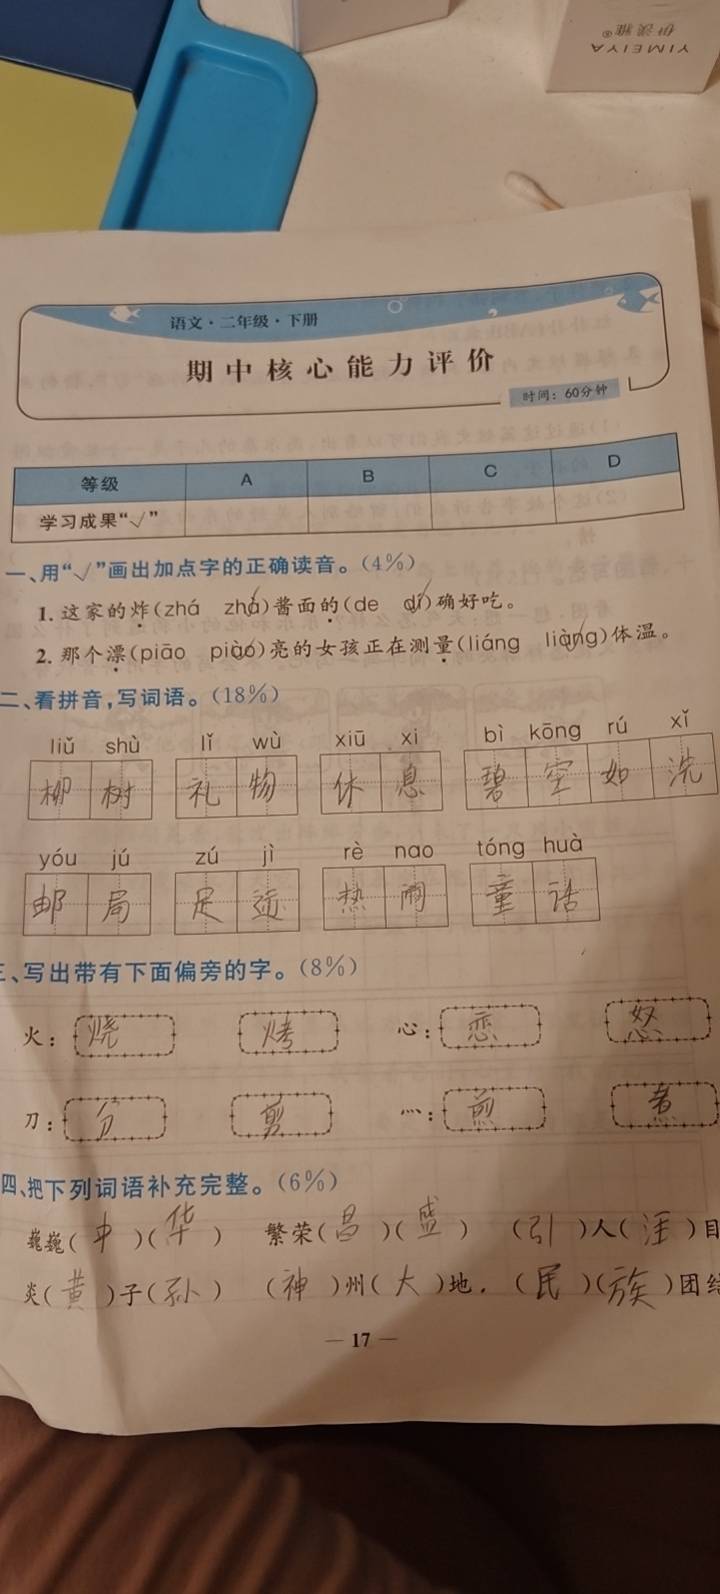 伊漢雅®
YIMEIYA
语文·二年级·下册
期中核心能力评价
时间：60分钟
等级 A B C D
学习成果“√”
一、用“√”画出加点字的正确读音。(4%)
1. 这家的炸(zhá zhà)酱面的(de dí)确好吃。
2. 那个漂(piāo piào)亮的女孩正在测量(liáng liàng)体温。
二、看拼音,写词语。(18%)
liǔ shù lǐ wù xiū xi bì kōng rú xǐ
柳树 礼物 休息 碧空如洗
yóu jú zú jì rè nao tóng huà
邮局 足迹 热闹 童话
三、写出带有下面偏旁的字。(8%)
火： 烧 烤 心： 恋 怒
刀： 分 剪 灬： 煎 煮
四、把下列词语补充完整。(6%)
巍巍(中)(华) 繁荣(昌)(盛) (引)人(注)目
炎(黄)子(孙) (神)州(大)地 (民)(族)团结
— 17 —